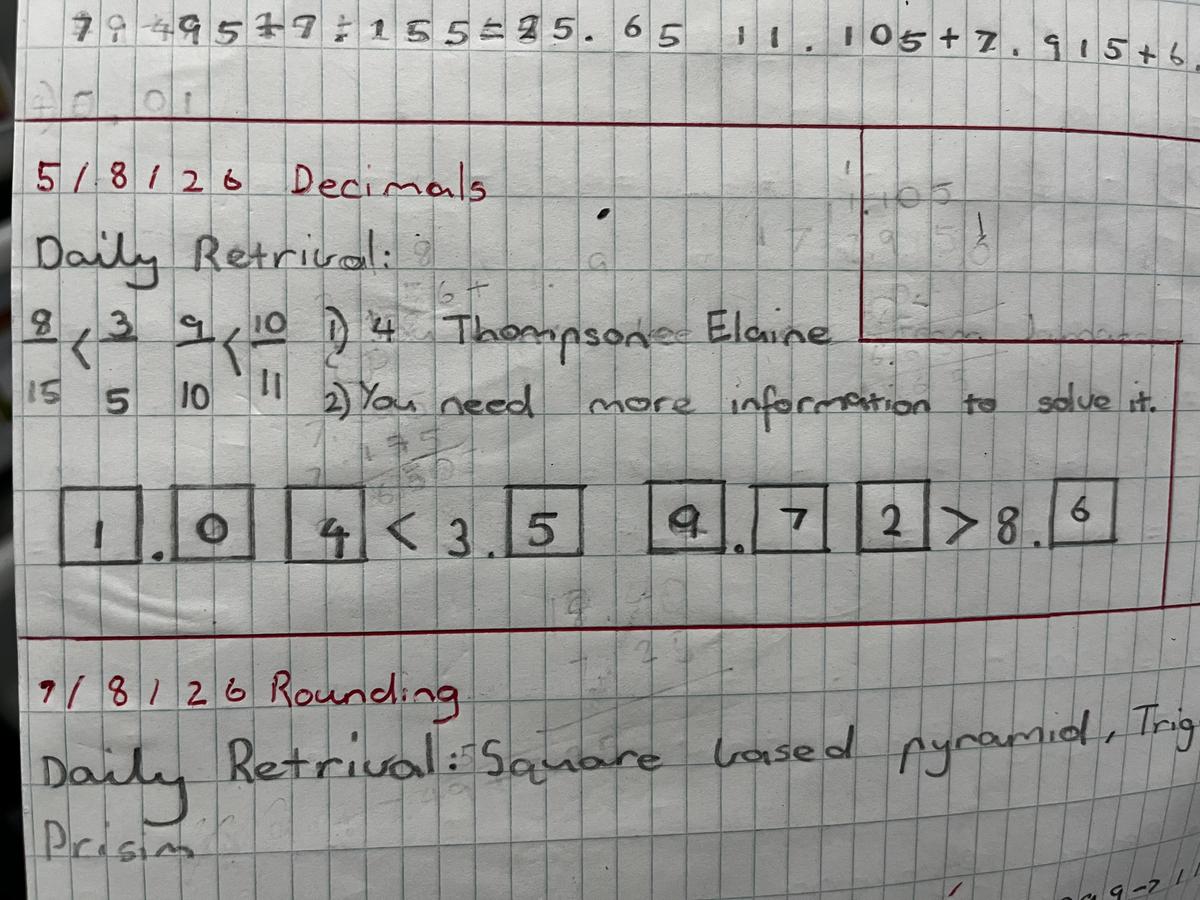 79 495+7÷155=25.65 11.105+7.915+6.
5/8/26 Decimals
Daily Retrival:
8/15 < 3/5 9/10 < 10/11 1) 4 Thompson Elaine
2) You need more information to solve it.
1.04 < 3.5 9.72 > 8.6
7/8/26 Rounding
Daily Retrival: Square based pyramid, Trig
Prisim